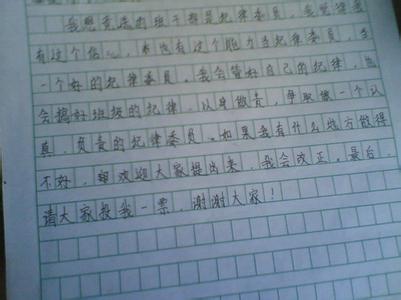 我想竞选的班干部是纪律委员,我觉得我
有这个信心,也有这个能力当纪律委员,当
一个好的纪律委员,我会管好自己的纪律,也
会搞好班级的纪律,以身做责,争取做一个认
真、负责的纪律委员。如果我有什么地方做得
不好,欢迎大家提出来,我会改正,最后,
请大家投我一票,谢谢大家!